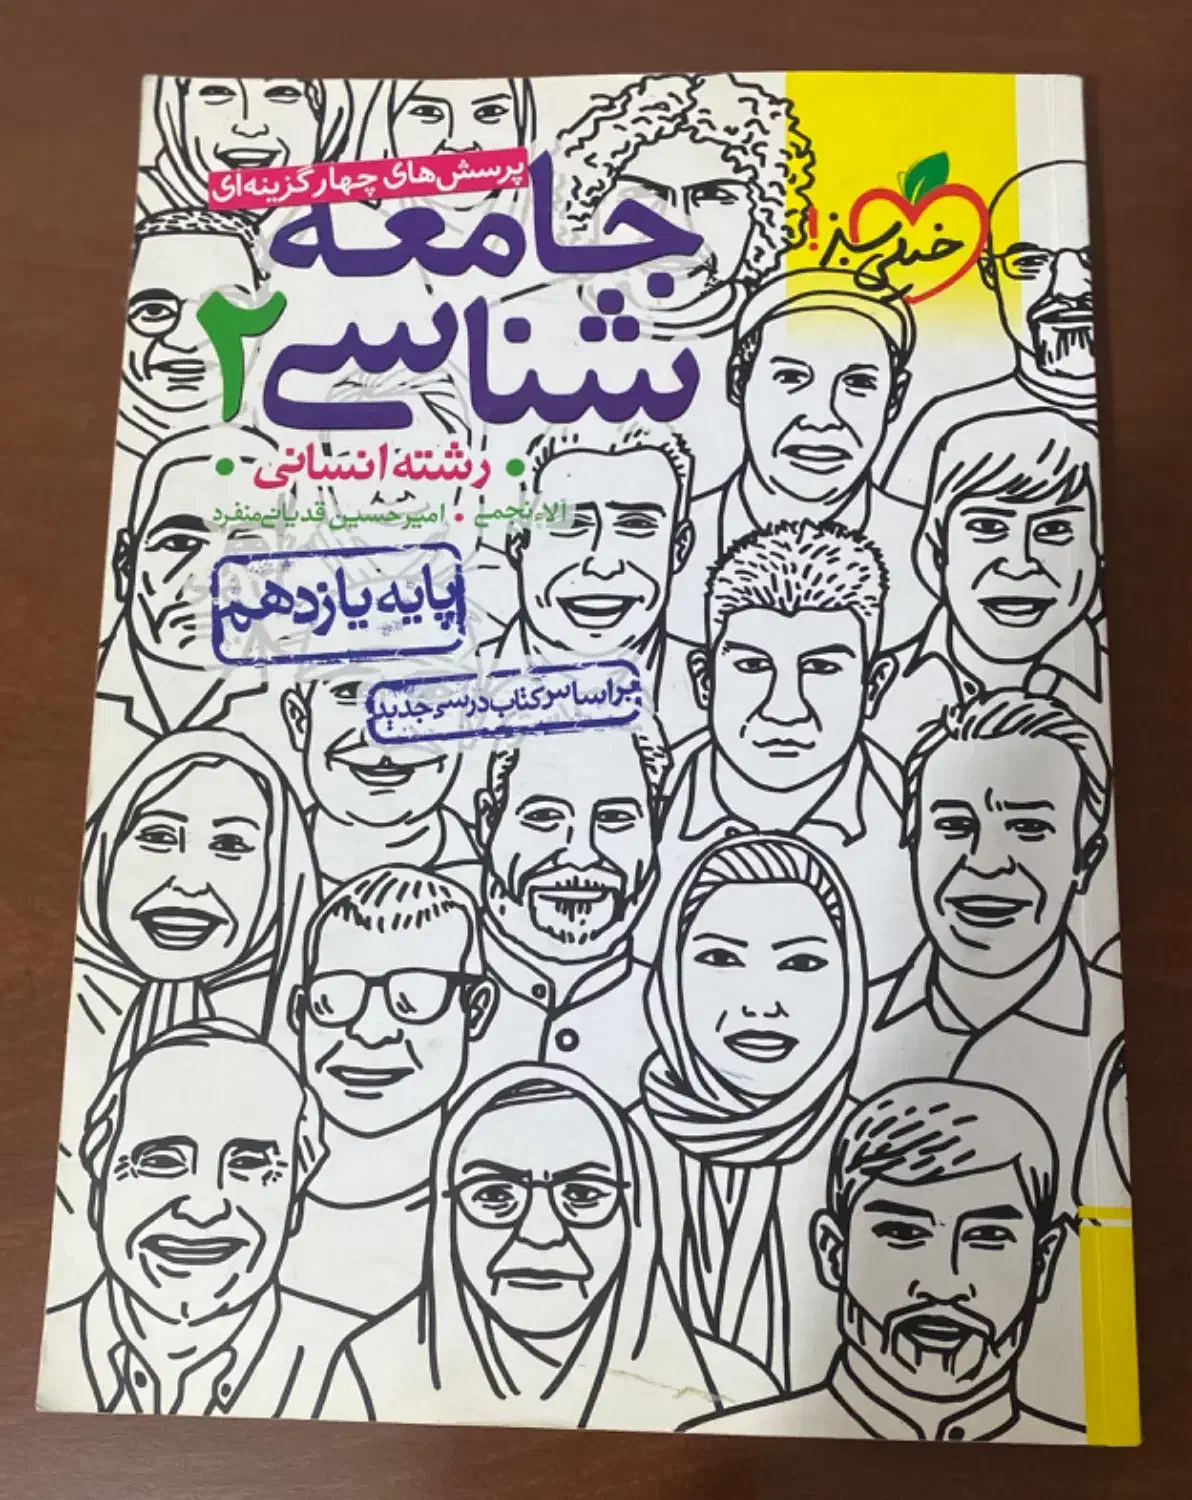 خیلی سبز!
پرسش‌های چهارگزینه‌ای
جامعه
شناسی ۲
• رشته انسانی •
آلاء نجمی • امیرحسین قدیانی‌منفرد
پایه یازدهم
براساس کتاب درسی جدید